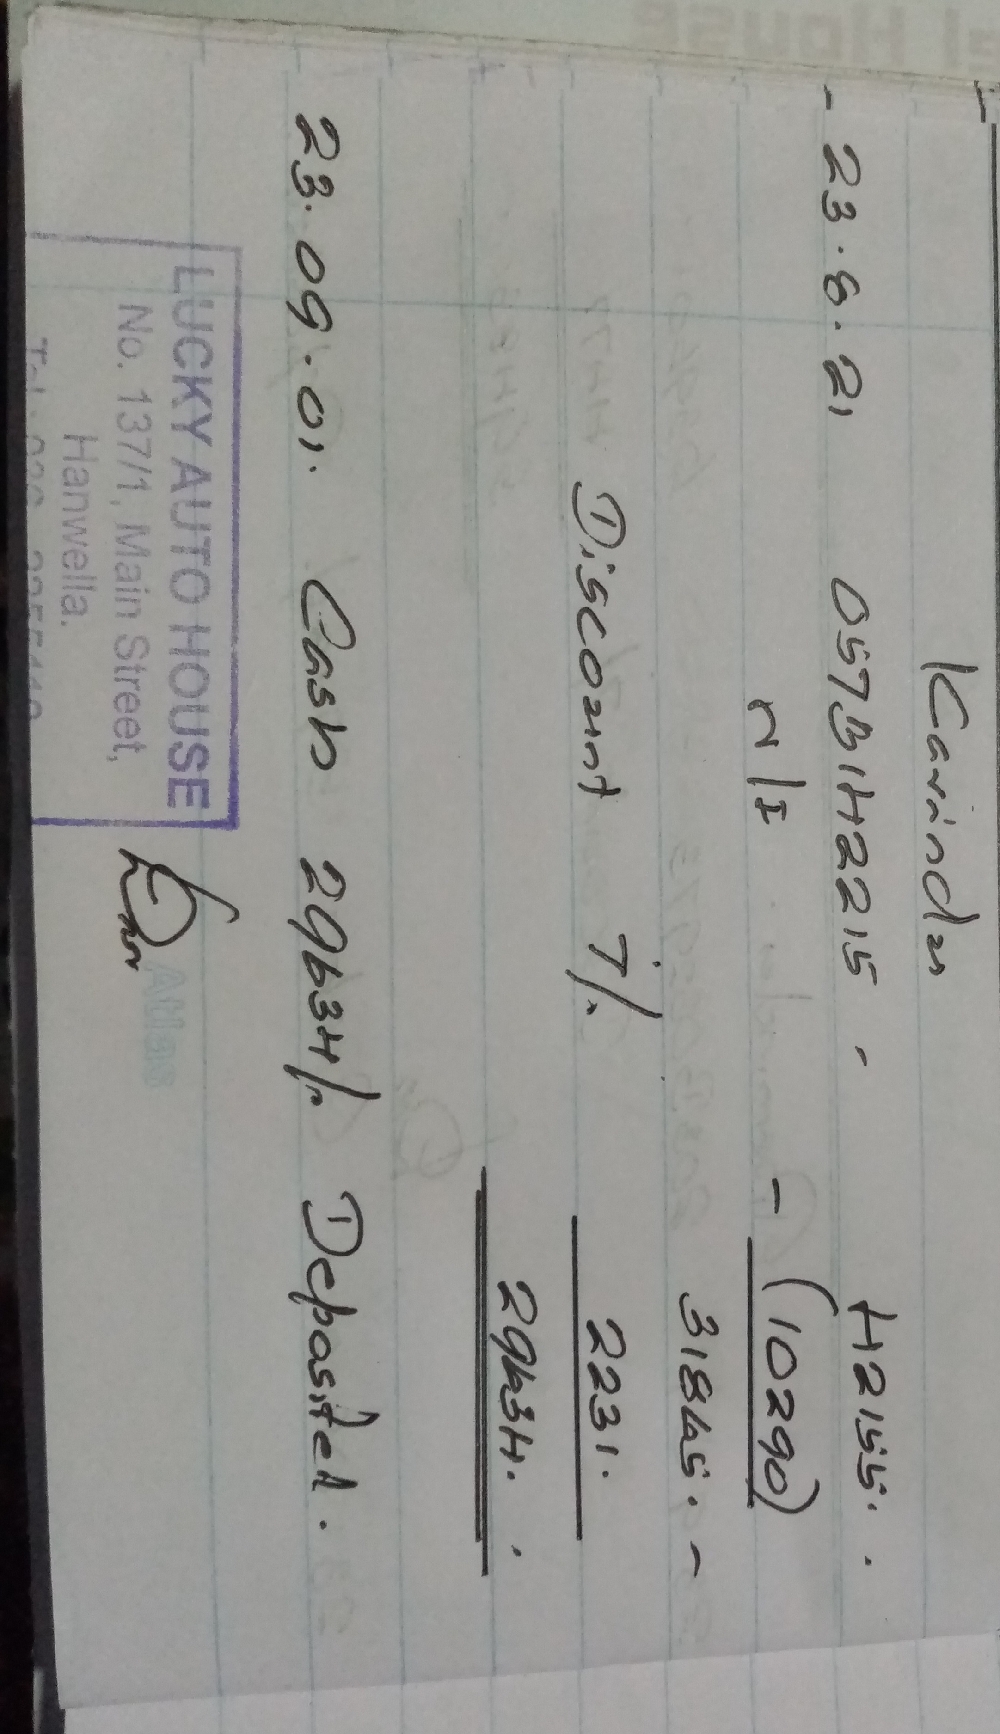 Kavindu
- 23.8.21 057B1H2215 - 42155.
N/I - (10290)
31865. -
Discount 7% 2231.
29634.
23.09.01. Cash 29634/= Deposited.
LUCKY AUTO HOUSE
No. 137/1, Main Street,
Hanwella.
Atlas